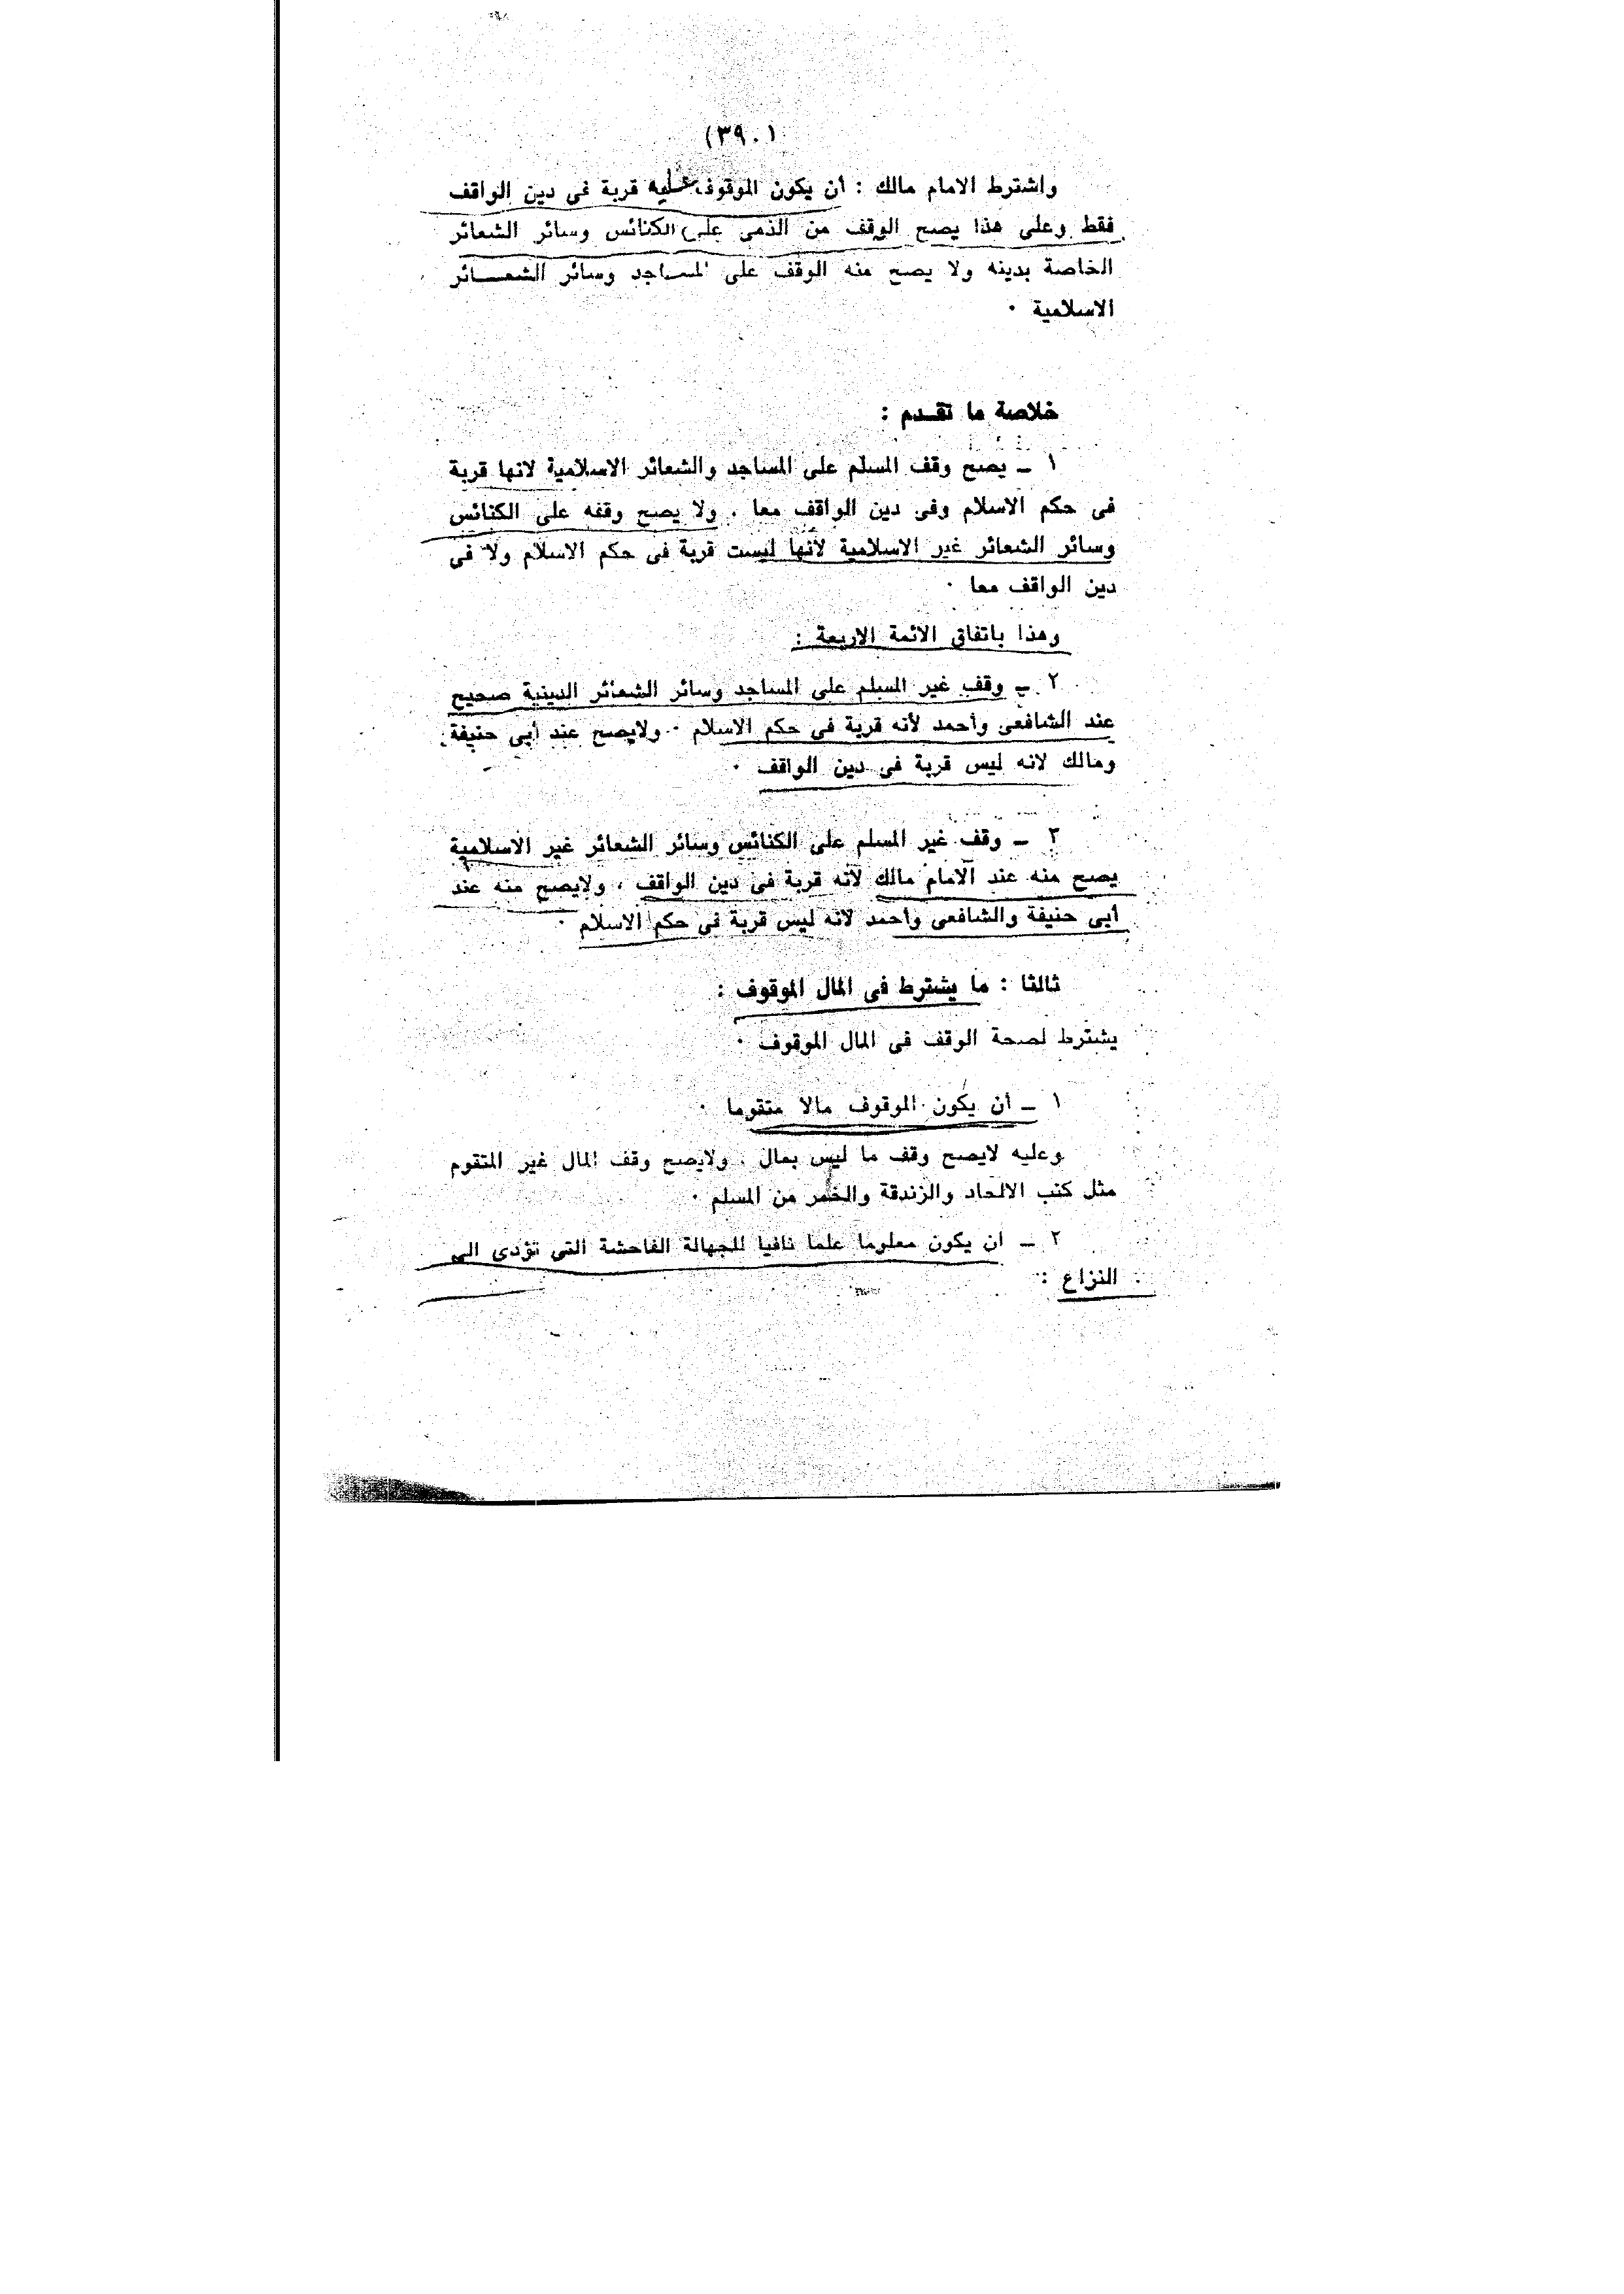 (٣٩٠)
واشترط الامام مالك : أن يكون الموقوف عليه قربة فى دين الواقف
فقط وعلى هذا يصح الوقف من الذمى على الكنائس وسائر الشعائر
الخاصة بدينه ولا يصح منه الوقف على المساجد وسائر الشعائر
الاسلامية ٠
خلاصة ما تقدم :
١ ــ يصح وقف المسلم على المساجد والشعائر الاسلامية لانها قربة
فى حكم الاسلام وفى دين الواقف معا ٠ ولا يصح وقفه على الكنائس
وسائر الشعائر غير الاسلامية لأنها ليست قربة فى حكم الاسلام ولا فى
دين الواقف معا ٠
وهذا باتفاق الائمة الاربعة :
٢ ــ وقف غير المسلم على المساجد وسائر الشعائر الدينية صحيح
عند الشافعى وأحمد لأنه قربة فى حكم الاسلام ٠ ولايصح عند أبى حنيفة
ومالك لانه ليس قربة فى دين الواقف ٠
٣ ــ وقف غير المسلم على الكنائس وسائر الشعائر غير الاسلامية
يصح منه عند الامام مالك لأنه قربة فى دين الواقف ٠ ولايصح منه عند
أبى حنيفة والشافعى وأحمد لأنه ليس قربة فى حكم الاسلام ٠
ثالثا : ما يشترط فى المال الموقوف :
يشترط لصحة الوقف فى المال الموقوف ٠
١ ــ أن يكون الموقوف مالا متقوما ٠
وعليه لايصح وقف ما ليس بمال ٠ ولايصح وقف المال غير المتقوم
مثل كتب الالحاد والزندقة والخمر من المسلم ٠
٢ ــ ان يكون معلوما علما نافيا للجهالة الفاحشة التى تؤدى الى
النزاع :